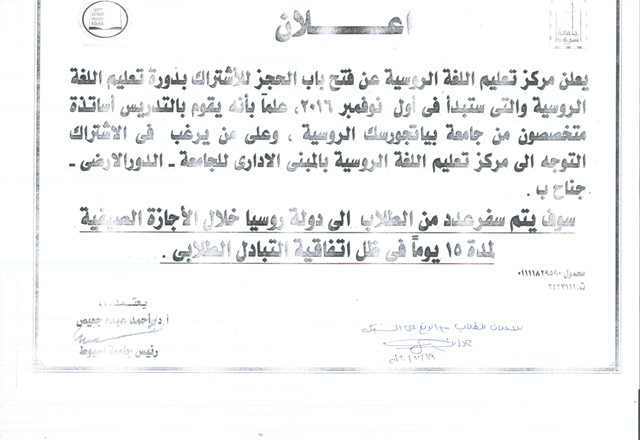 جامعة أسيوط
اعلان
يعلن مركز تعليم اللغة الروسية عن فتح باب الحجز للأشتراك بدورة تعليم اللغة
الروسية والتى ستبدأ فى أول نوفمبر ٢٠١٦، علماً بأنه يقوم بالتدريس أساتذة
متخصصون من جامعة بياتجورسك الروسية ، وعلى من يرغب فى الاشتراك
التوجه الى مركز تعليم اللغة الروسية بالمبنى الادارى للجامعة ـ الدورالارضى ـ
جناح ب .
سوف يتم سفرعدد من الطلاب الى دولة روسيا خلال الأجازة الصيفية
لمدة ١٥ يوماً فى ظل اتفاقية التبادل الطلابى .
محمول ٠١١١١٨٢٩٥٩٠
ت:٢٤٢٣١١١
يعتمد،،،
أ.د/أحمد عبده جعيص
رئيس جامعة أسيوط
للاعلان للطلاب مع الرفع على الشبكة